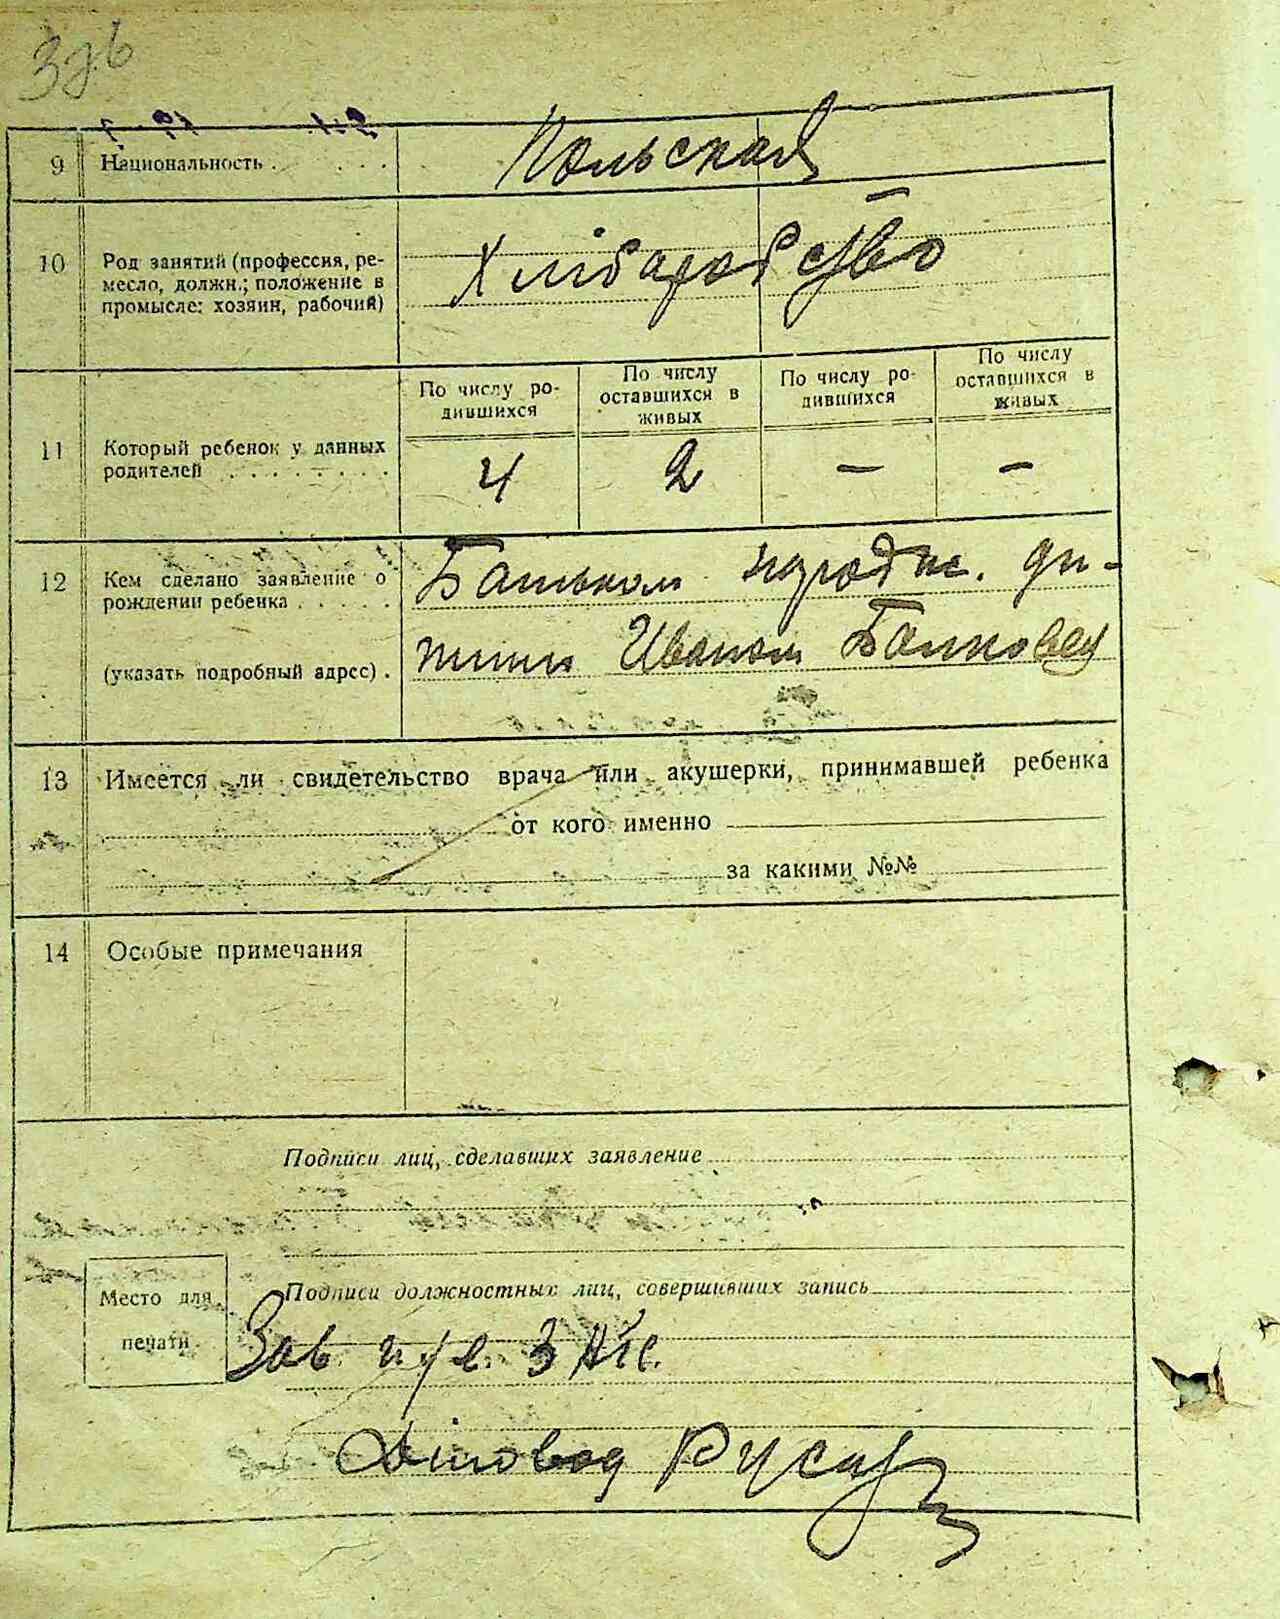 9 Национальность . . . . . Польская
10 Род занятий (профессия, ре-
месло, должн.; положение в
промысле: хозяин, рабочий)
Хлібаробство
По числу ро-
дившихся
По числу
оставшихся в
живых
По числу ро-
дившихся
По числу
оставшихся в
живых
11 Который ребенок у данных
родителей . . . . . . . .
4 2 — —
12 Кем сделано заявление о
рождении ребенка . . . . .
(указать подробный адрес) .
Батьком народж. ди-
тини Иваном
13 Имеется ли свидетельство врача или акушерки, принимавшей ребенка
от кого именно
за какими №№
14 Особые примечания
Подписи лиц, сделавших заявление
Подписи должностных лиц, совершивших запись
Место для
печати
Зав.
Діловод